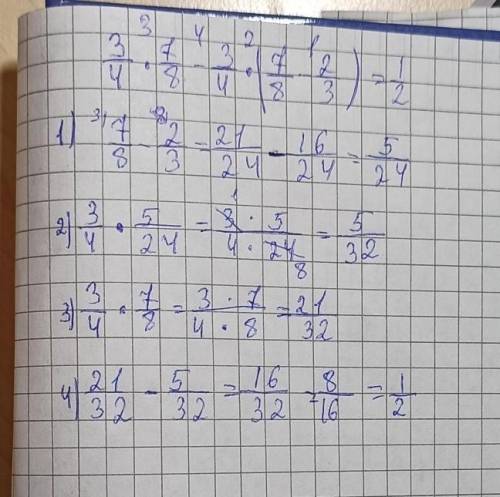 3 4 2 1
3/4 · 7/8 - 3/4 · (7/8 - 2/3) = 1/2
1) ³⁾7/8 - ⁸⁾2/3 = 21/24 - 16/24 = 5/24
2) 3/4 · 5/24 = 3 · 5/4 · 24 = 5/32
1 8
3) 3/4 · 7/8 = 3 · 7/4 · 8 = 21/32
4) 21/32 - 5/32 = 16/32 = 8/16 = 1/2